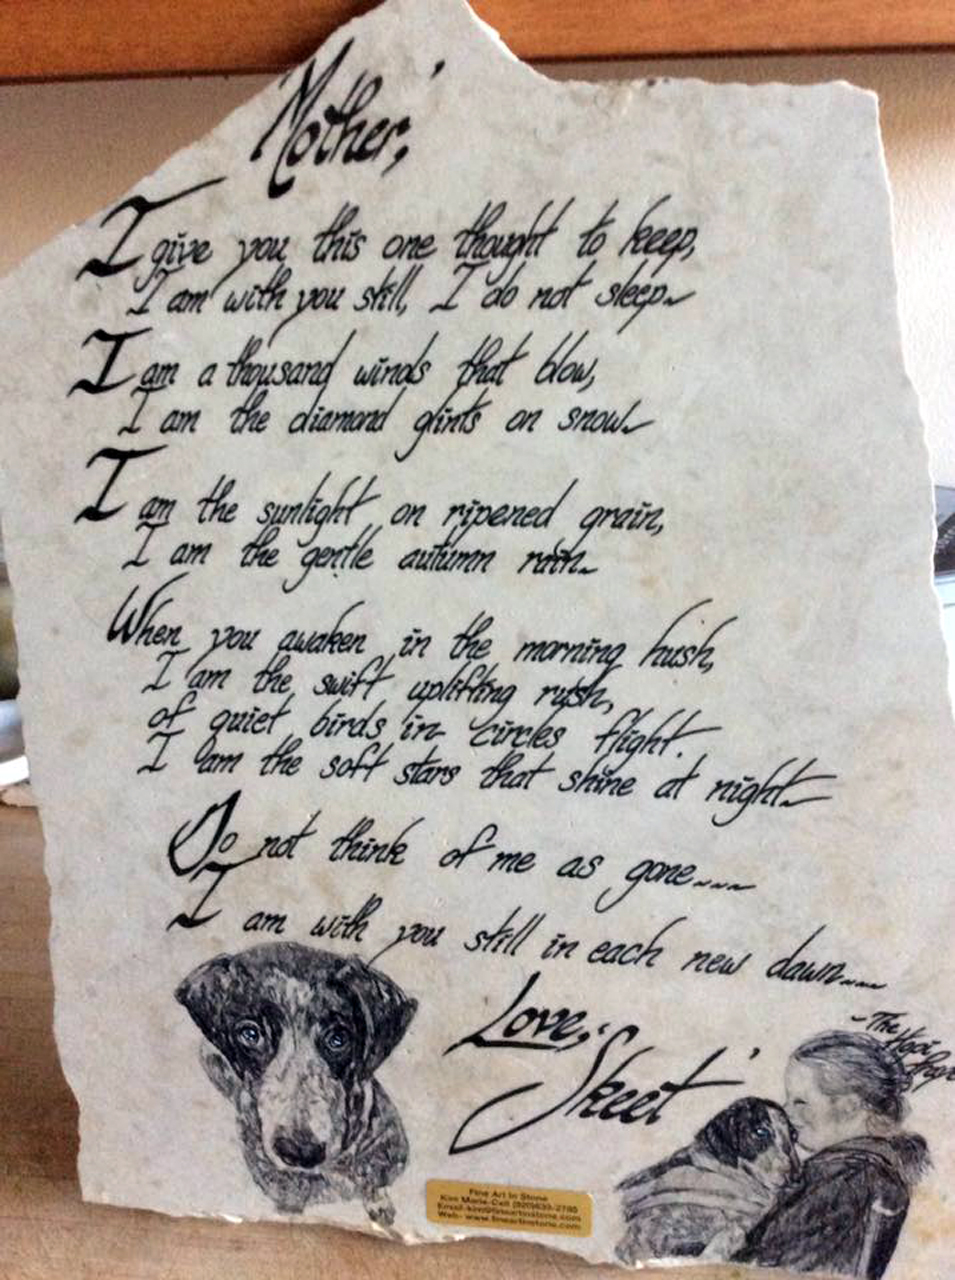 'Mother,'
I give you this one thought to keep,
I am with you still, I do not sleep~
I am a thousand winds that blow,
I am the diamond glints on snow~
I am the sunlight on ripened grain,
I am the gentle autumn rain~
When you awaken in the morning hush,
I am the swift uplifting rush,
of quiet birds in circles flight.
I am the soft stars that shine at night~
Do not think of me as gone~~~
I am with you still in each new dawn~~~
Love,
'Skeet'
~The
Fine Art In Stone
Kim Marie
Web- www.fineartinstone.com